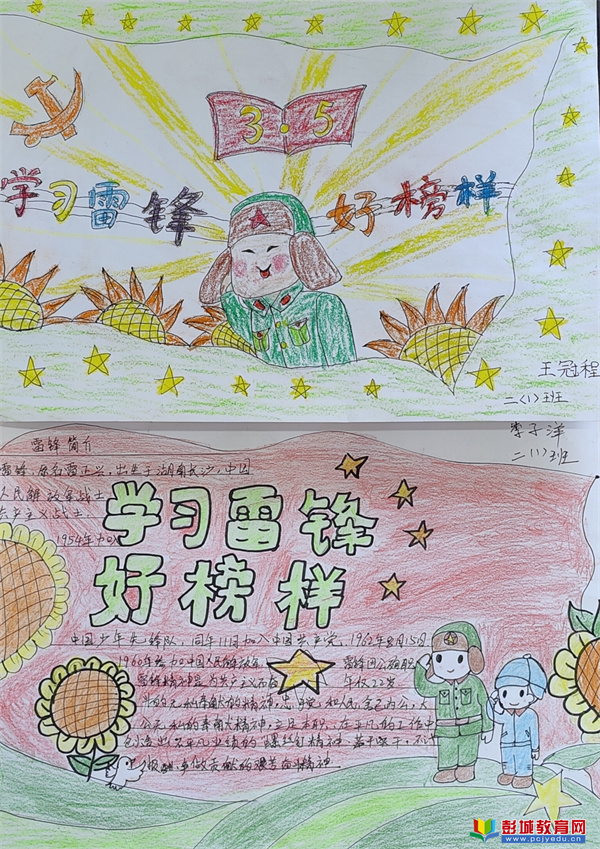 3·5
学习雷锋 好榜样
王冠程
二(1)班
李子洋
二(1)班
雷锋简介
雷锋,原名雷正兴,出生于湖南长沙,中国
人民解放军战士
共产主义战士
1954年加入
学习雷锋
好榜样
中国少年先锋队,同年11月加入中国共产党,1962年8月15日
1960年参加中国人民解放军
雷锋因公殉职
雷锋精神是为共产主义而
年仅22岁
的无私奉献的精神,忠于党和人民,舍己为公,大
公无私的奉献精神,立足本职、在平凡的工作中
创造出不平凡业绩的"螺丝钉精神"苦干实干,不计
报酬,争做贡献的艰苦奋斗精神
彭城教育网
www.pcjyedu.cn